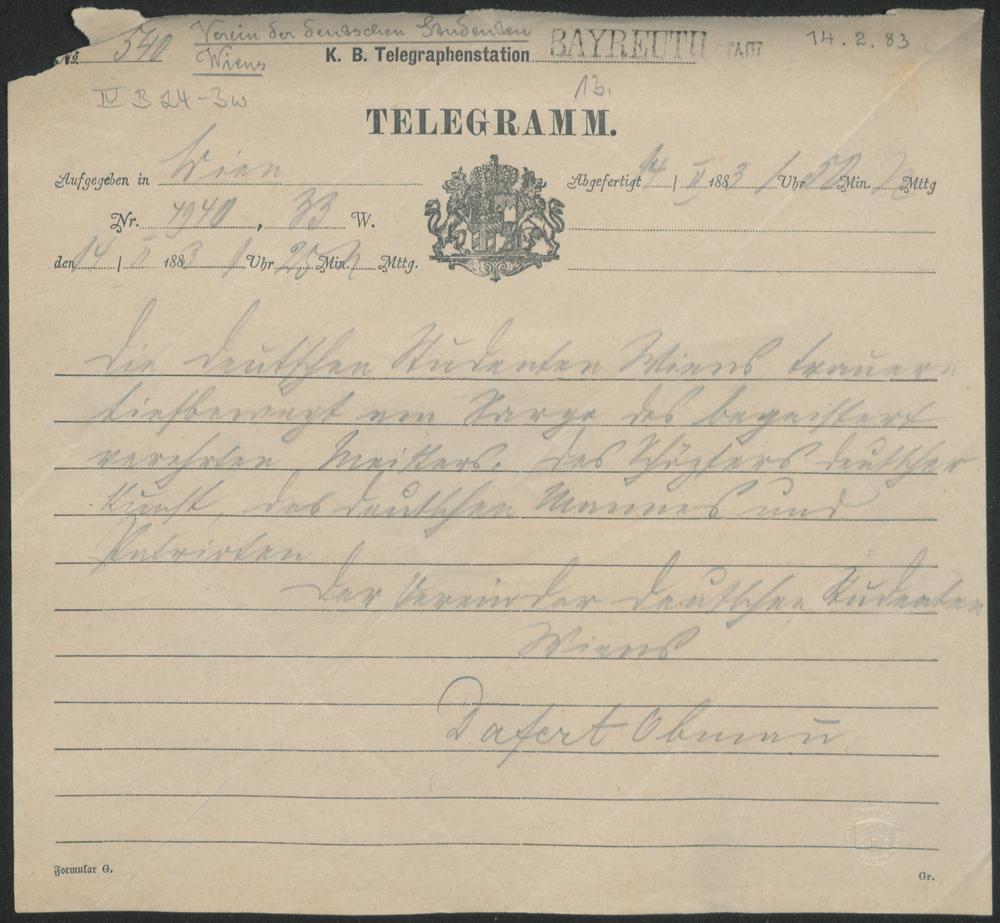 Verein der deutschen Studenten
№ 540 Wiens K. B. Telegraphenstation BAYREUTH STADT 14.2.83
IV B 24-3w 13.
TELEGRAMM.
Aufgegeben in Wien Abgefertigt 14 / II 1883 1 Uhr 50 Min. Mttg
Nr. 4940, 33 W.
den 14 / II 1883 1 Uhr 25 Min. Mttg.
Die deutschen Studenten Wiens trauern
tiefbewegt am Sarge des begeistert
verehrten Meisters. des Schöpfers deutscher
Kunst, des deutschen Mannes und
Patrioten
Der Verein der deutschen Studenten
Wiens
Dafert Obmann
Formular G. Gr.